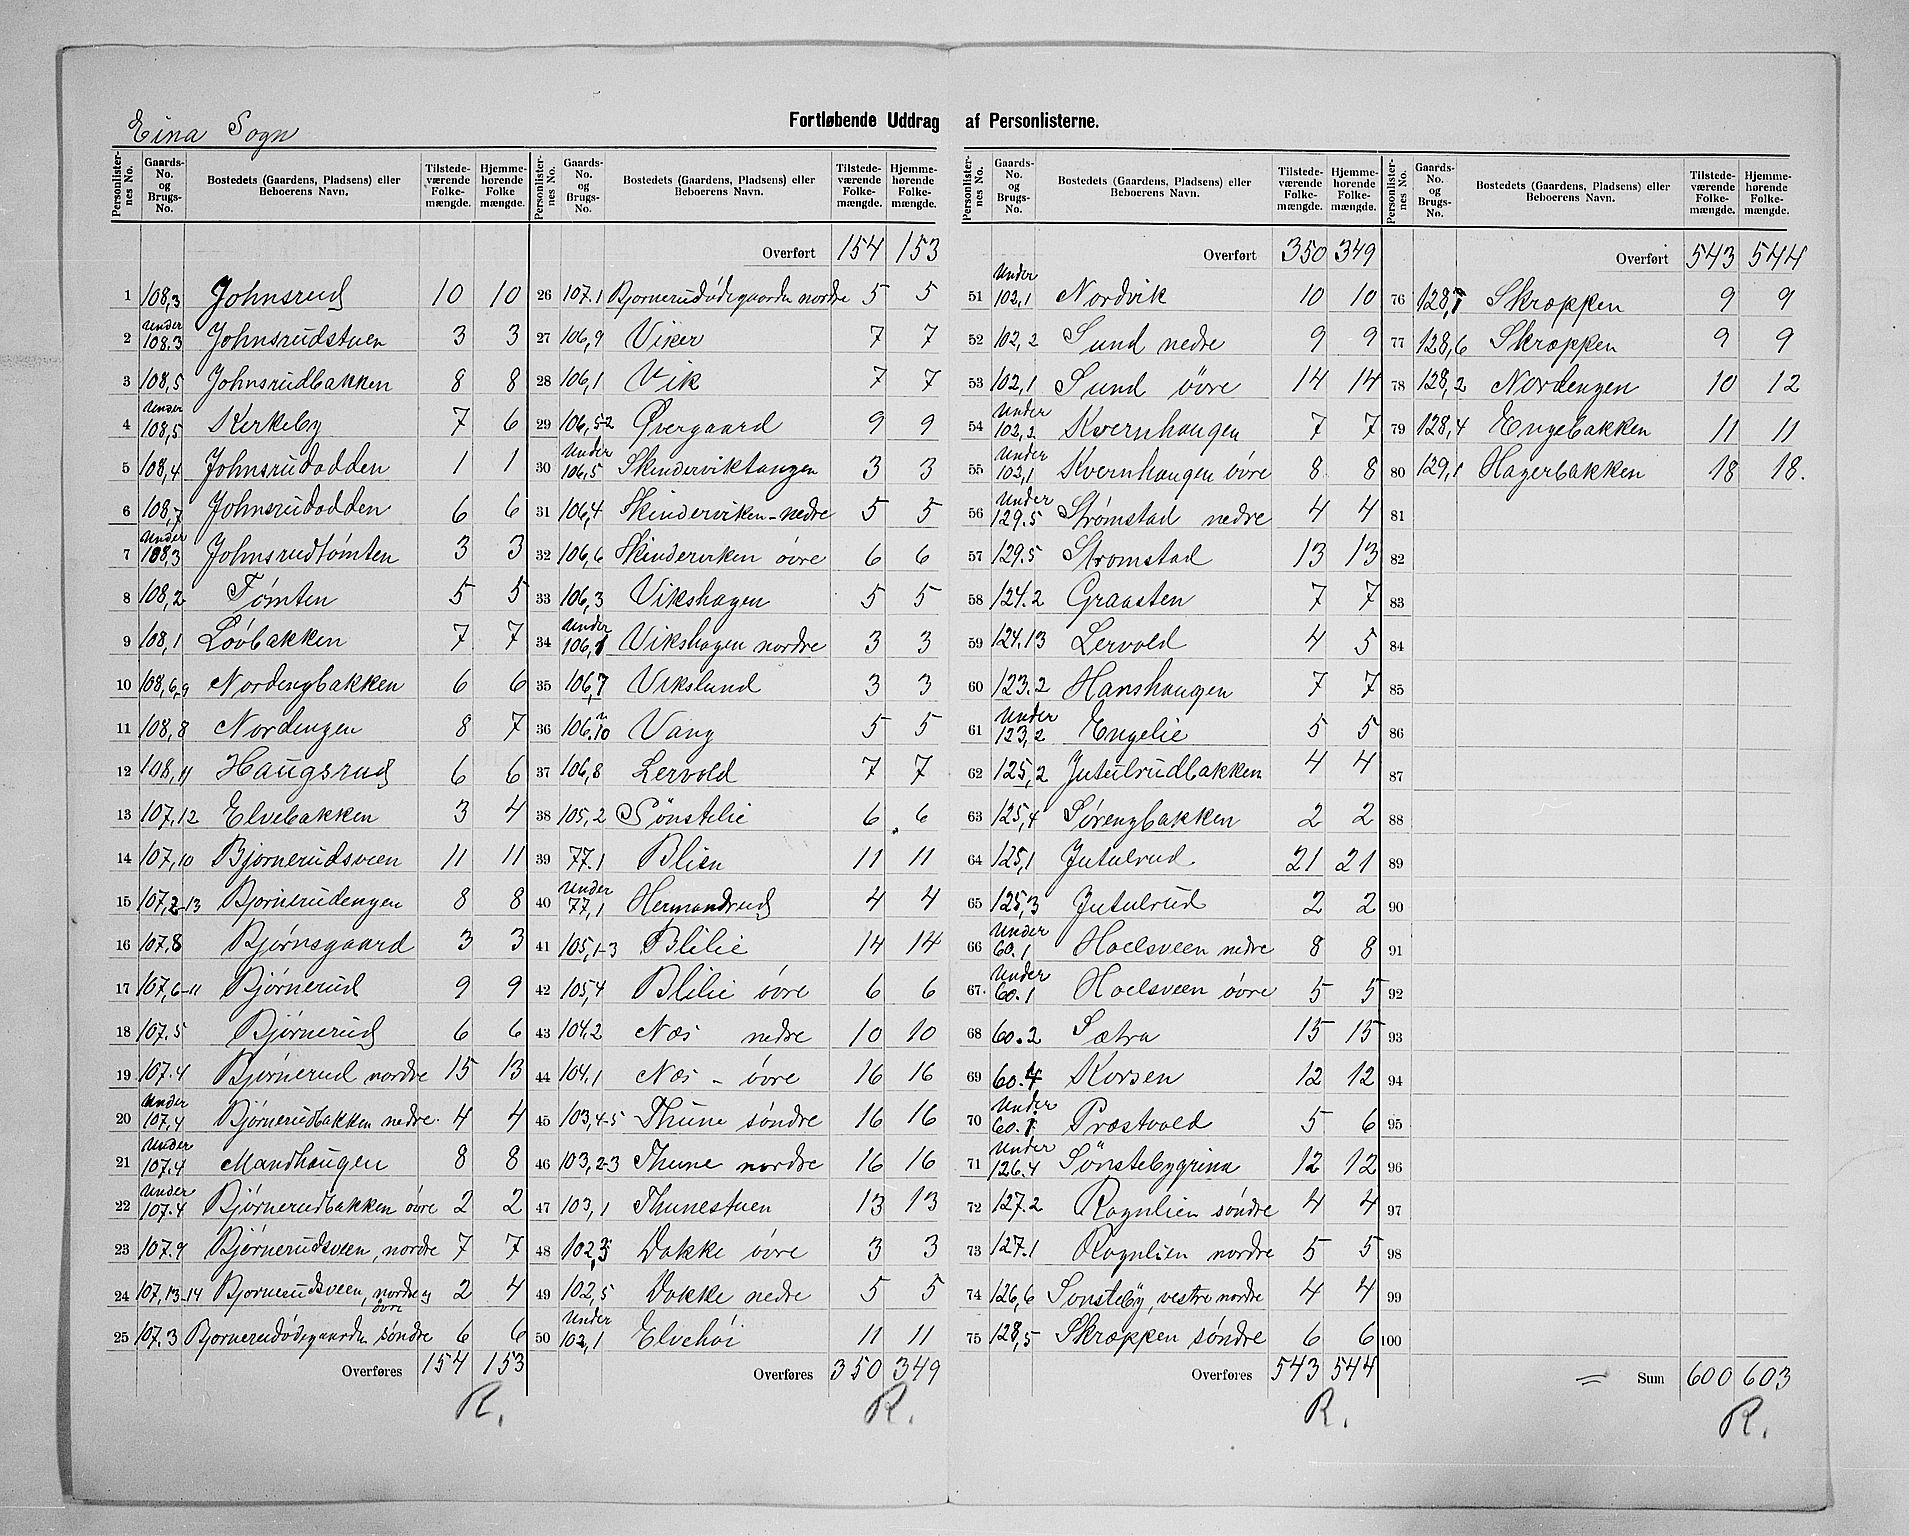 Eina Sogn
Fortløbende Uddrag af Personlisterne.
Personlister-nes No. | Gaards-No. og Brugs-No. | Bostedets (Gaardens, Pladsens) eller Beboerens Navn. | Tilstede-værende Folke-mængde. | Hjemme-hørende Folke mængde.
1 108,3 Johnsrud 10 10
2 Under 108.3 Johnsrudstuen 3 3
3 108,5 Johnsrudbakken 8 8
4 Under 108,5 Kirkeby 7 6
5 108,4 Johnsrudodden 1 1
6 108,7 Johnsrudodden 6 6
7 Under 108,3 Johnsrudtömten 3 3
8 108,2 Tömten 5 5
9 108,1 Lövbakken 7 7
10 108,6,9 Nordengbakken 6 6
11 108,8 Nordengen 8 7
12 108,11 Haugsrud 6 6
13 107,12 Elvebakken 3 4
14 107,10 Bjornerudsveen 11 11
15 107,2-13 Bjornerudengen 8 8
16 107,8 Bjørnsgaard 3 3
17 107,6-11 Bjørnerud 9 9
18 107.5 Bjørnerud 6 6
19 107.4 Bjørnerud nordre 15 13
20 Under 107,4 Bjørnerudbakken nedre 4 4
21 Under 107.4 Mandhaugen 8 8
22 Under 107.4 Bjørnerudbakken övre 2 2
23 107.9 Bjørnerudsveen, nordre 7 7
24 107,13-14 Bjornerudsveen, nordre og övre 2 4
25 107.3 Bjornerudödegaarden söndre 6 6
Overføres 154 153
R.
Personlister-nes No. | Gaards-No. og Brugs-No. | Bostedets (Gaardens, Pladsens) eller Beboerens Navn. | Tilstede-værende Folke-mængde. | Hjemme-hørende Folke-mængde.
Overført 154 153
26 107.1 Bjornerudödegaarden nordre 5 5
27 106,9 Viker 7 7
28 106,1 Vik 7 7
29 106,5-2 Øvergaard 9 9
30 Under 106,5 Skinderviktangen 3 3
31 106,4 Skinderviken-nedre 5 5
32 106,6 Skinderviken övre 6 6
33 106,3 Vikshagen 5 5
34 Under 106,1 Vikshagen nordre 3 3
35 106,7 Vikslund 3 3
36 106.10 Vang 5 5
37 106,8 Lervold 7 7
38 105,2 Sönstelie 6 6
39 77.1 Blien 11 11
40 Under 77,1 Hermandrud 4 4
41 105,1-3 Blilie 14 14
42 105,4 Blilie övre 6 6
43 104.2 Næs nedre 10 10
44 104.1 Næs - övre 16 16
45 103,4-5 Thune söndre 16 16
46 103,2-3 Thune nordre 16 16
47 103,1 Thunestuen 13 13
48 102,3 Dakke övre 3 3
49 102,5 Dakke nedre 5 5
50 Under 102,1 Elvehöi 11 11
Overføres 350 349
R.
Personlister-nes No. | Gaards-No. og Brugs-No. | Bostedets (Gaardens, Pladsens) eller Beboerens Navn. | Tilstede-værende Folke-mængde. | Hjemme-hørende Folke-mængde.
Overført 350 349
51 Under 102,1 Nordvik 10 10
52 102,2 Sund nedre 9 9
53 102,1 Sund övre 14 14
54 Under 102,2 Kvernhaugen 7 7
55 Under 102,1 Kvernhaugen övre 8 8
56 Under 129.5 Strømstad nedre 4 4
57 129.5 Stromstad 13 13
58 124.2 Graasten 7 7
59 124.13 Lervold 4 5
60 123.2 Hanshaugen 7 7
61 Under 123,2 Engelie 5 5
62 125,2 Jutulrudbakken 4 4
63 125,4 Sørengbakken 2 2
64 125,1 Jutulrud 21 21
65 125,3 Jutulrud 2 2
66 Under 60.1 Hoelsveen nedre 8 8
67. Under 60.1 Hoelsveen övre 5 5
68 60.2 Sætra 15 15
69 60.4 Korsen 12 12
70 Under 60.1 Præstvold 5 6
71 Under 126.4 Sönstebygrina 12 12
72 127.2 Rognlien söndre 4 4
73 127.1 Rognlien nordre 5 5
74 126,6 Sonsteby, vestre nordre 4 4
75 128,5 Skræppen söndre 6 6
Overføres 543 544
R.
Personlister-nes No. | Gaards-No. og Brugs-No. | Bostedets (Gaardens, Pladsens) eller Beboerens Navn. | Tilstede-værende Folke-mængde. | Hjemme-hørende Folke-mængde.
Overført 543 544
76 128,7 Skræppen 9 9
77 128,6 Skræppen 9 9
78 128,2 Nordengen 10 12
79 128,4 Engebakken 11 11
80 129,1 Hagerbakken 18 18.
81
82
83
84
85
86
87
88
89
90
91
92
93
94
95
96
97
98
99
100
= Sum 600 603
R.